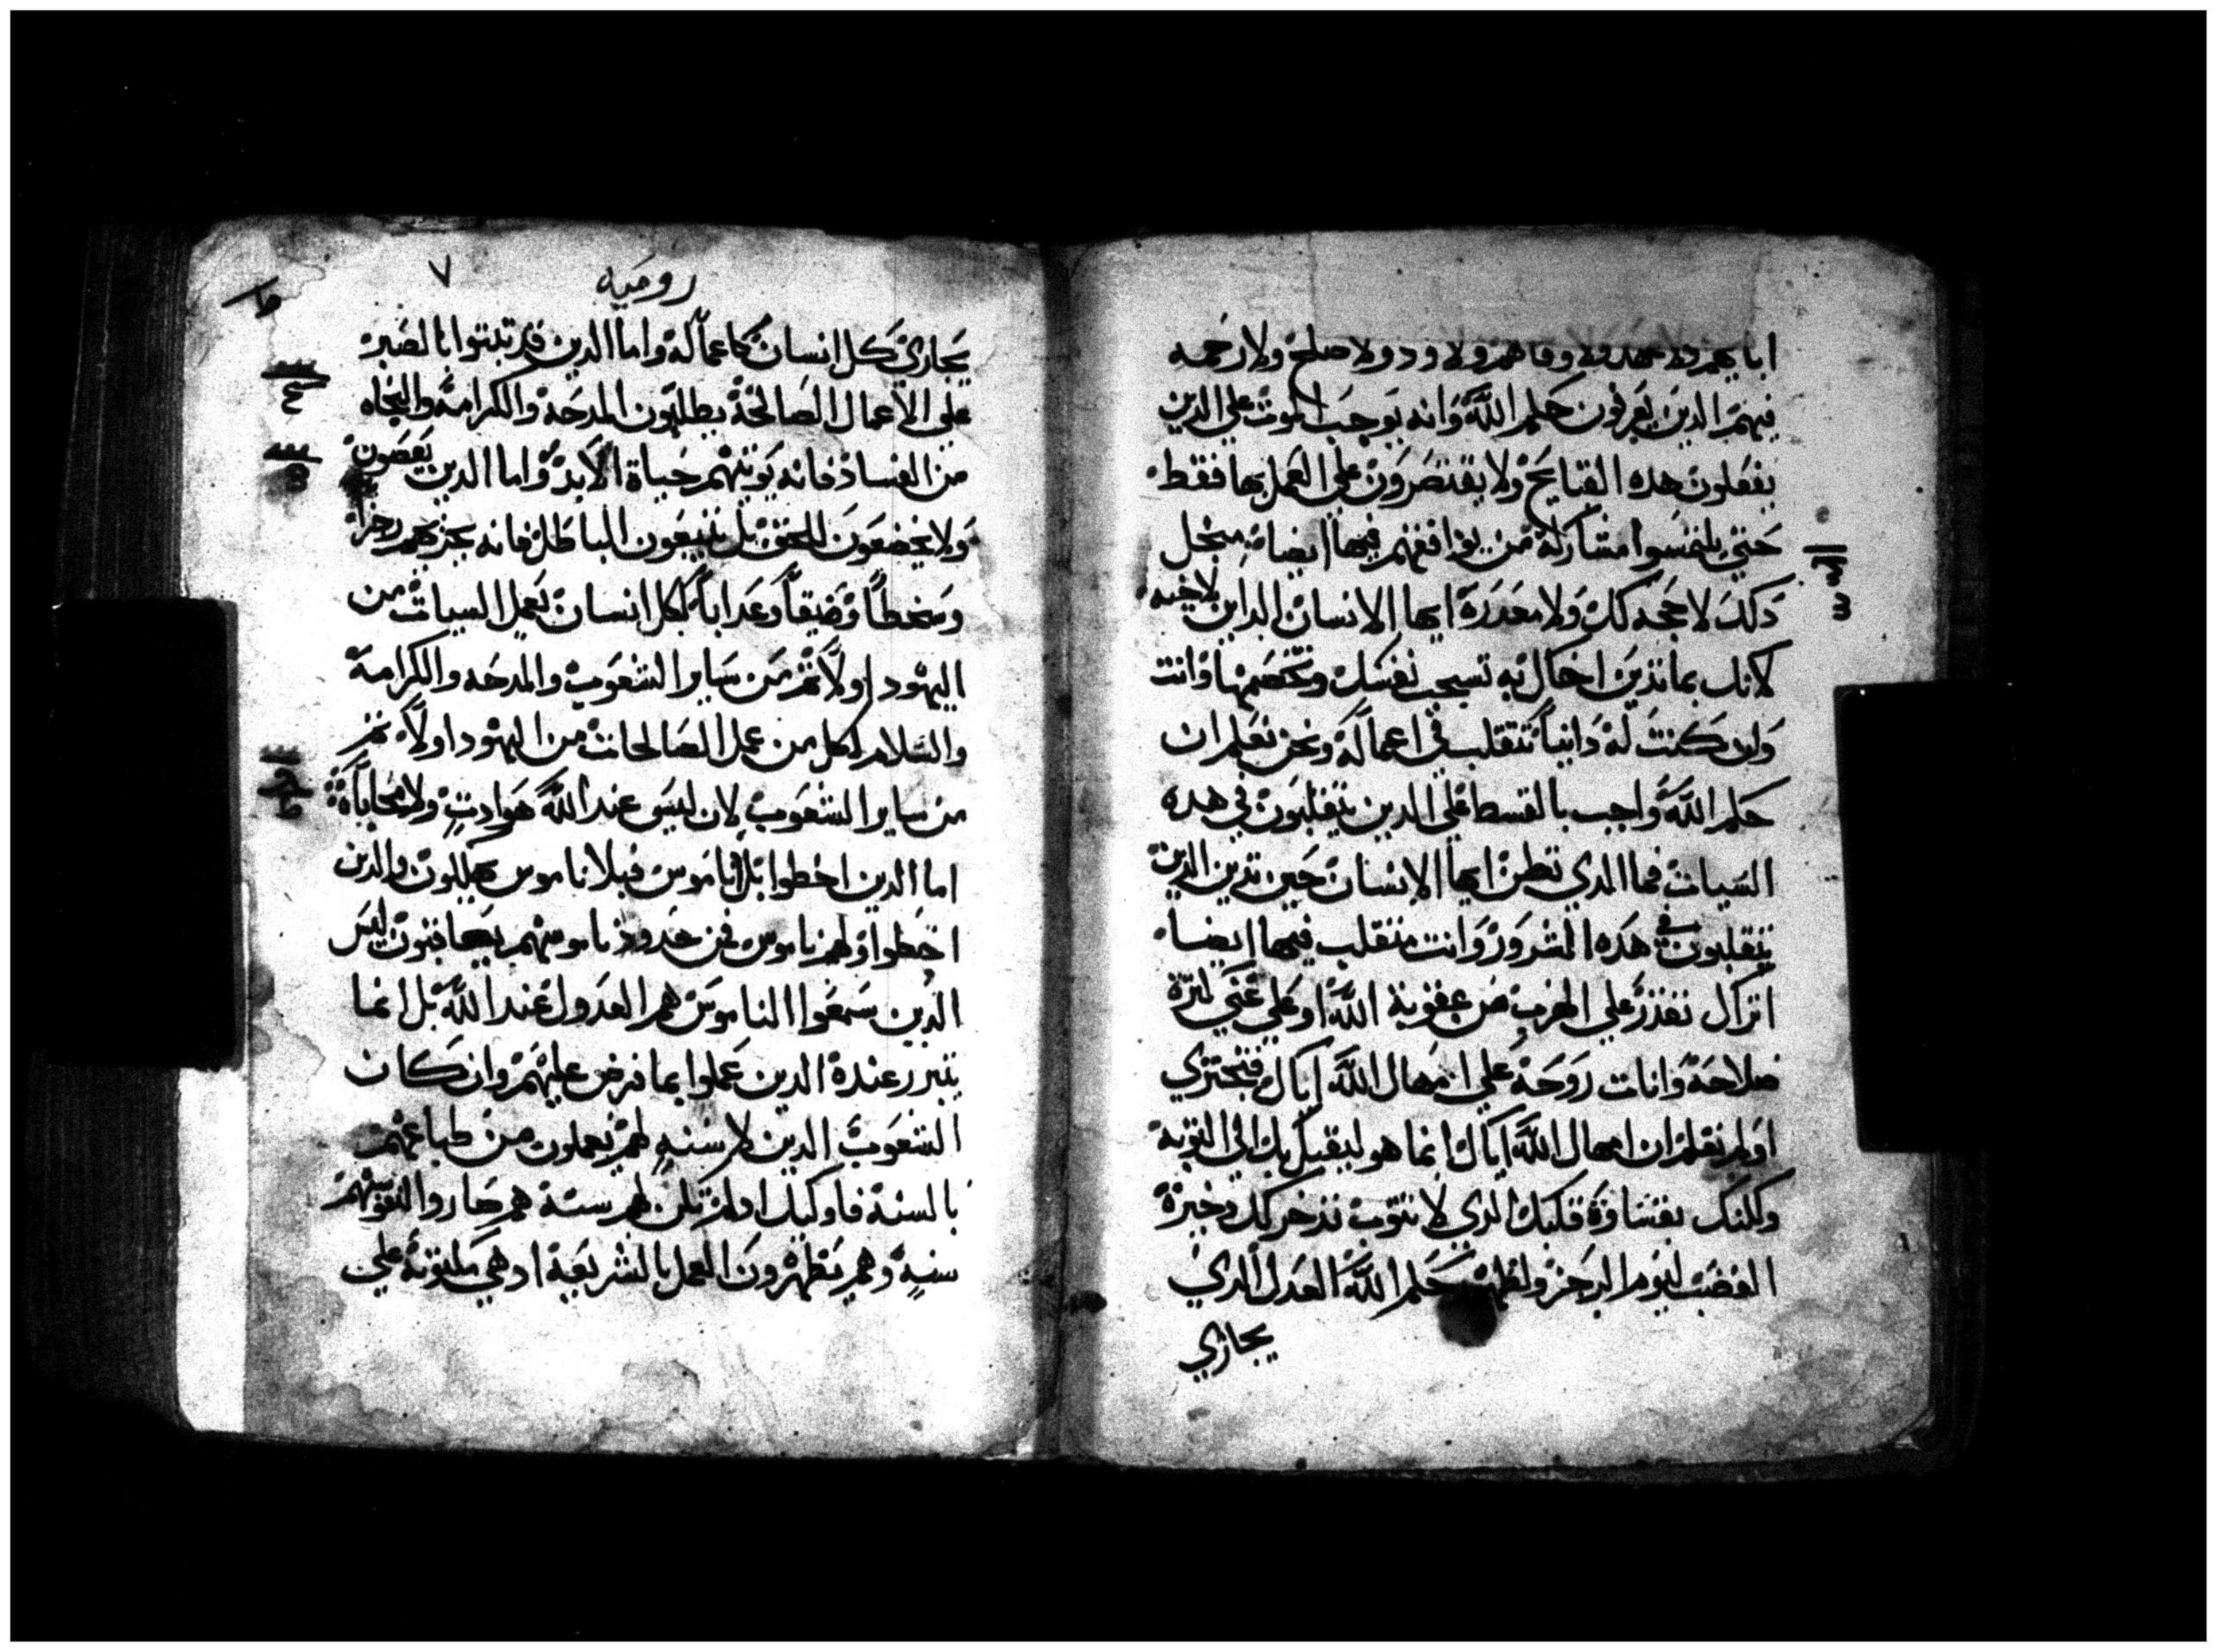 ابايهم ولا عهد ولا وفا لهم ولا ود ولا صلح ولا رحمه
فيهم الدين يعرفون حكم الله وانه يوجب الموت علي الدين
يفعلون هده القبايح ولا يقتصرون علي العمل بها فقط
حتي يلتمسوا مشاركة من يوافقهم فيها ايضا من اجل
دلك لا حجه لك ولا معدرة ايها الانسان الداين لاخيه
لانك بما تدين اخاك به تشجب نفسك وتخصمها وانت
وان كنت له داينا تتقلب في اعماله ونحن نعلم ان
حكم الله واجب بالقسط علي الدين يتقلبون في هده
السيات فما الدي تظن ايها الانسان حين تدين الدين
يتقلبون في هده الشرور وانت متقلب فيها ايضا
اتراك تقدر علي الهرب من عقوبة الله او علي غني كثرة
صلاحه وانات روحه علي امهال الله اياك فتجتري
اولم تعلم ان امهال الله اياك انما هو ليقبل بك الي التوبة
ولكنك بقساوة قلبك الدي لا يتوب تدخر لك دخيرة
الغضب ليوم الرجز ولظهور حكم الله العدل الدي
يجازي
روميه
٧
يجازي كل انسان كاعماله واما الدين قد تبتوا بالصبر
علي الاعمال الصالحة يطلبون المدحة والكرامة والنجاه
من الفساد فانه يوتيهم حياة الابد واما الدين يعصون
ولا يخضعون للحق بل يتبعون الباطل فانه يجزيهم رجزا
وسخطا وضيقا وعدابا لكل انسان يعمل السيات من
اليهود اولا تم من ساير الشعوب والمدحه والكرامة
والسلام لكل من عمل الصالحات من اليهود اولا تم
من ساير الشعوب لان ليس عند الله هوادت ولا محاباة
اما الدين اخطوا بلا ناموس فبلا ناموس يهلكون والدين
اخطوا ولهم ناموس فمن حدود ناموسهم يعاقبون ليس
الدين سمعوا الناموس هم العدول عند الله بل انما
يتبرر عنده الدين عملوا بما فرض عليهم وان كان
الشعوب الدين لا سنه لهم يعملون من طباعهم
بالسنة فاوليك اد لم تكن لهم سنة هم صاروا لنفوسهم
سنه وهم يظهرون العمل بالشريعة اد هي مكتوبة علي